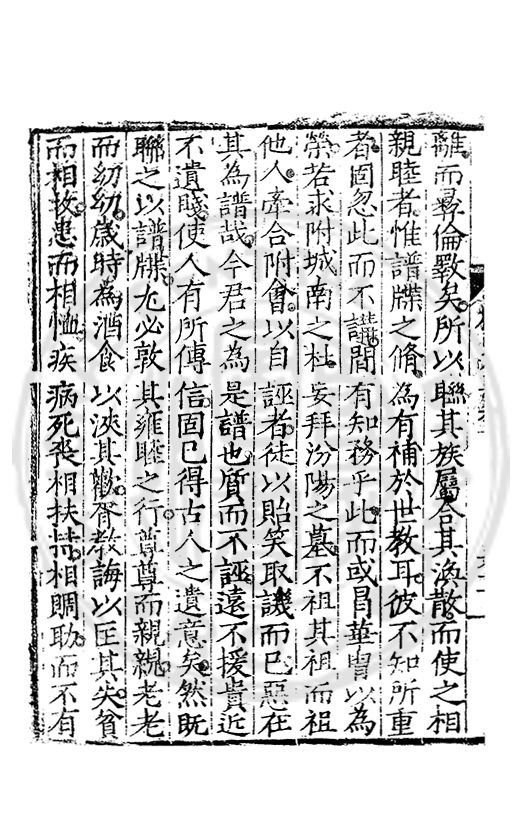 離而彞倫斁矣所以聯其族屬合其渙散而使之相
親睦者惟譜牒之脩為有補於世教耳彼不知所重
者固忽此而不講間有知務乎此而或冒華胄以為
榮若求附城南之杜妄拜汾陽之墓不祖其祖而祖
他人牽合附會以自誣者徒以貽笑取譏而已惡在
其為譜哉今君之為是譜也質而不誣遠不援貴近
不遺賤使人有所傳信固已得古人之遺意矣然既
聯之以譜牒尤必敦其雍睦之行尊尊而親親老老
而幼幼歲時為酒食以浹其歡胥教誨以匡其失貧
而相救患而相恤疾病死喪相扶持相賙助而不有